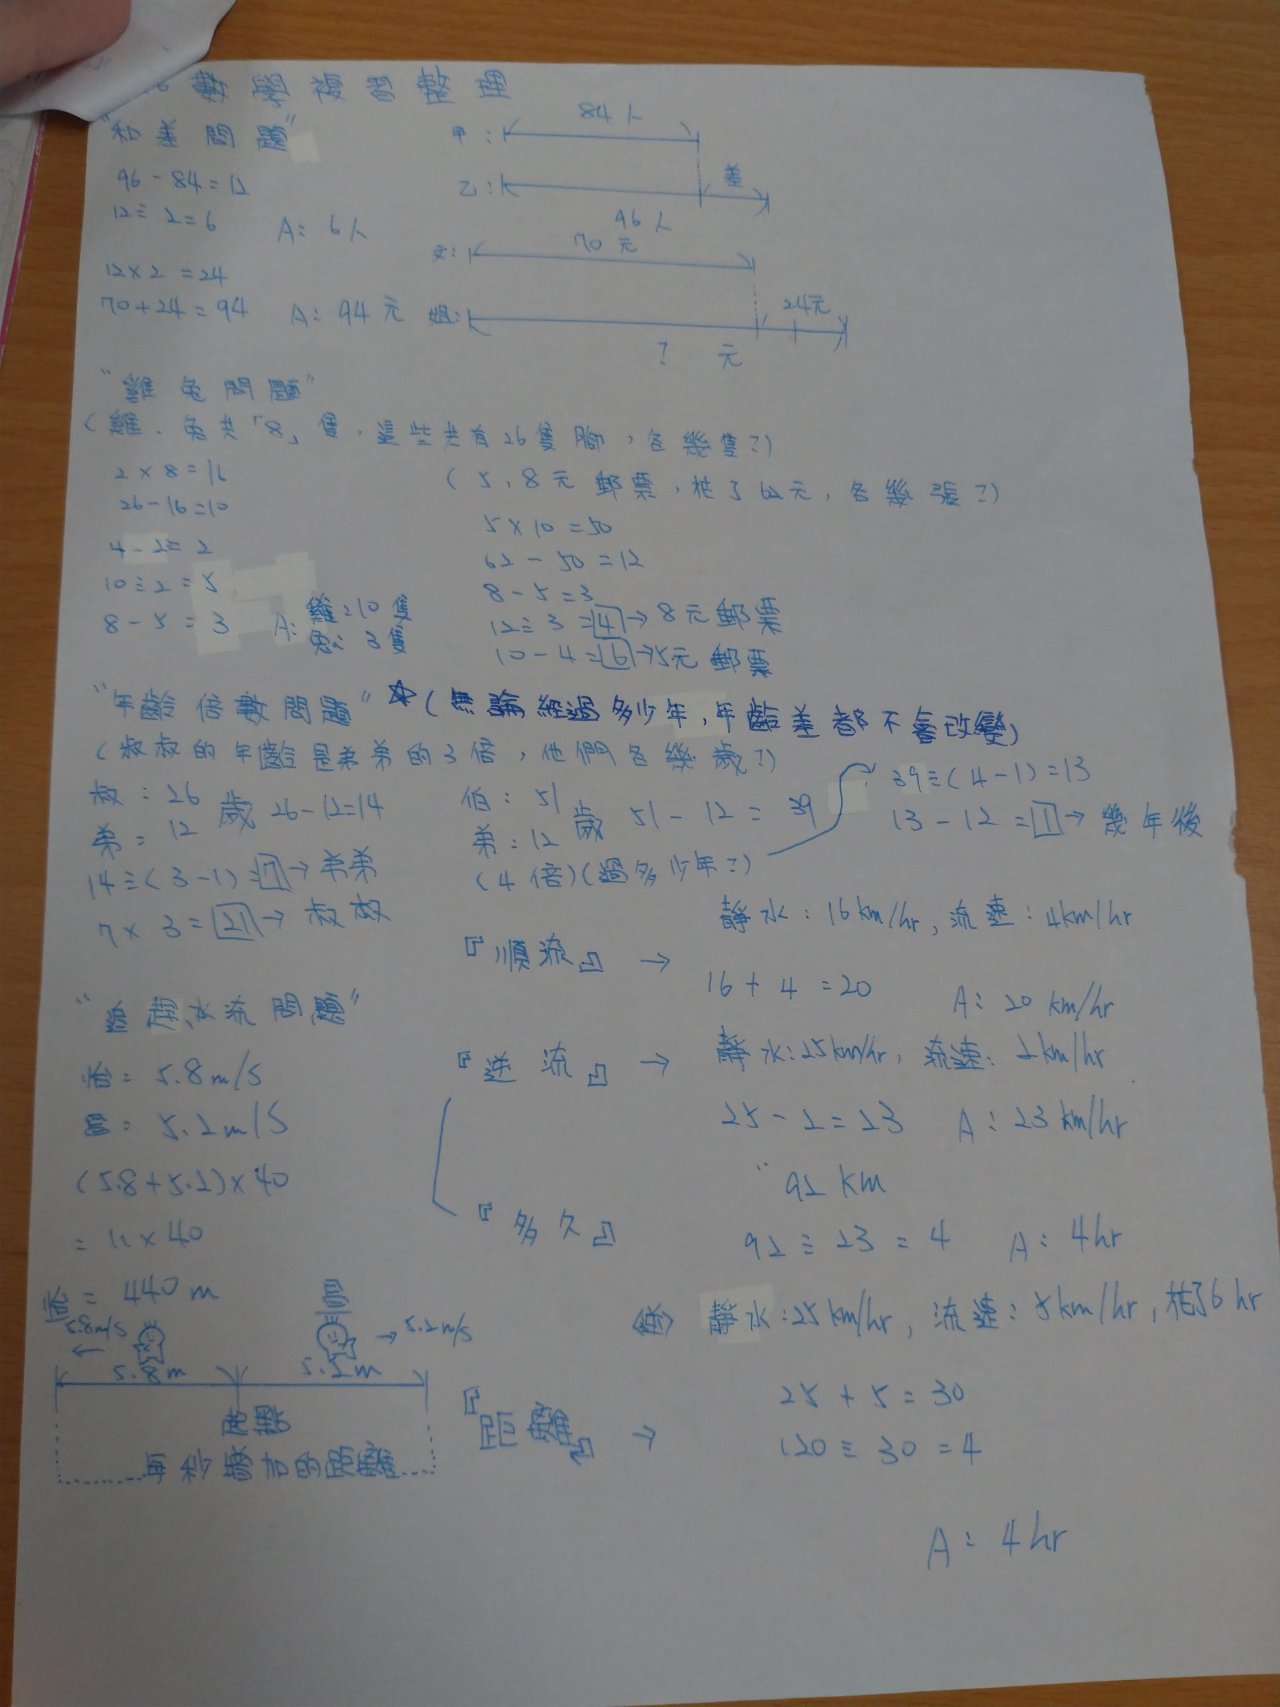 數學複習整理
"和差問題"
96-84=12
12÷2=6 A:6人
甲: 84人
乙: 差
96人
12×2=24
70+24=94 A:94元
70元
姐: 24元
? 元
"雞兔問題"
(雞、兔共「8」隻,這些共有26隻腳,各幾隻?)
2×8=16
26-16=10
4-2=2
10÷2=5
8-5=3 A:雞:10隻
兔:3隻
(5、8元郵票,花了62元,各幾張?)
5×10=50
62-50=12
8-5=3
12÷3=4→8元郵票
10-4=6→5元郵票
"年齡倍數問題"☆(無論經過多少年,年齡差都不會改變)
(叔叔的年齡是弟弟的3倍,他們各幾歲?)
叔:26
弟:12 歲 26-12=14
14÷(3-1)=7→弟弟
7×3=21→叔叔
伯:51
弟:12 歲 51-12=39
(4倍)(過多少年?)
39÷(4-1)=13
13-12=1→幾年後
水流問題"
5.8m/s
5.2m/s
(5.8+5.2)×40
=11×40
=440m
5.8m/s
5.2m/s
5.8m 5.2m
距離
每秒 的距離
『順流』→ 靜水:16km/hr,流速:4km/hr
16+4=20 A:20km/hr
『逆流』→ 靜水:25km/hr,流速:2km/hr
25-2=23 A:23km/hr
『多久』 92KM
92÷23=4 A:4hr
靜水:25km/hr,流速:5km/hr,花了6hr
『距離』→ 25+5=30
120÷30=4
A:4hr